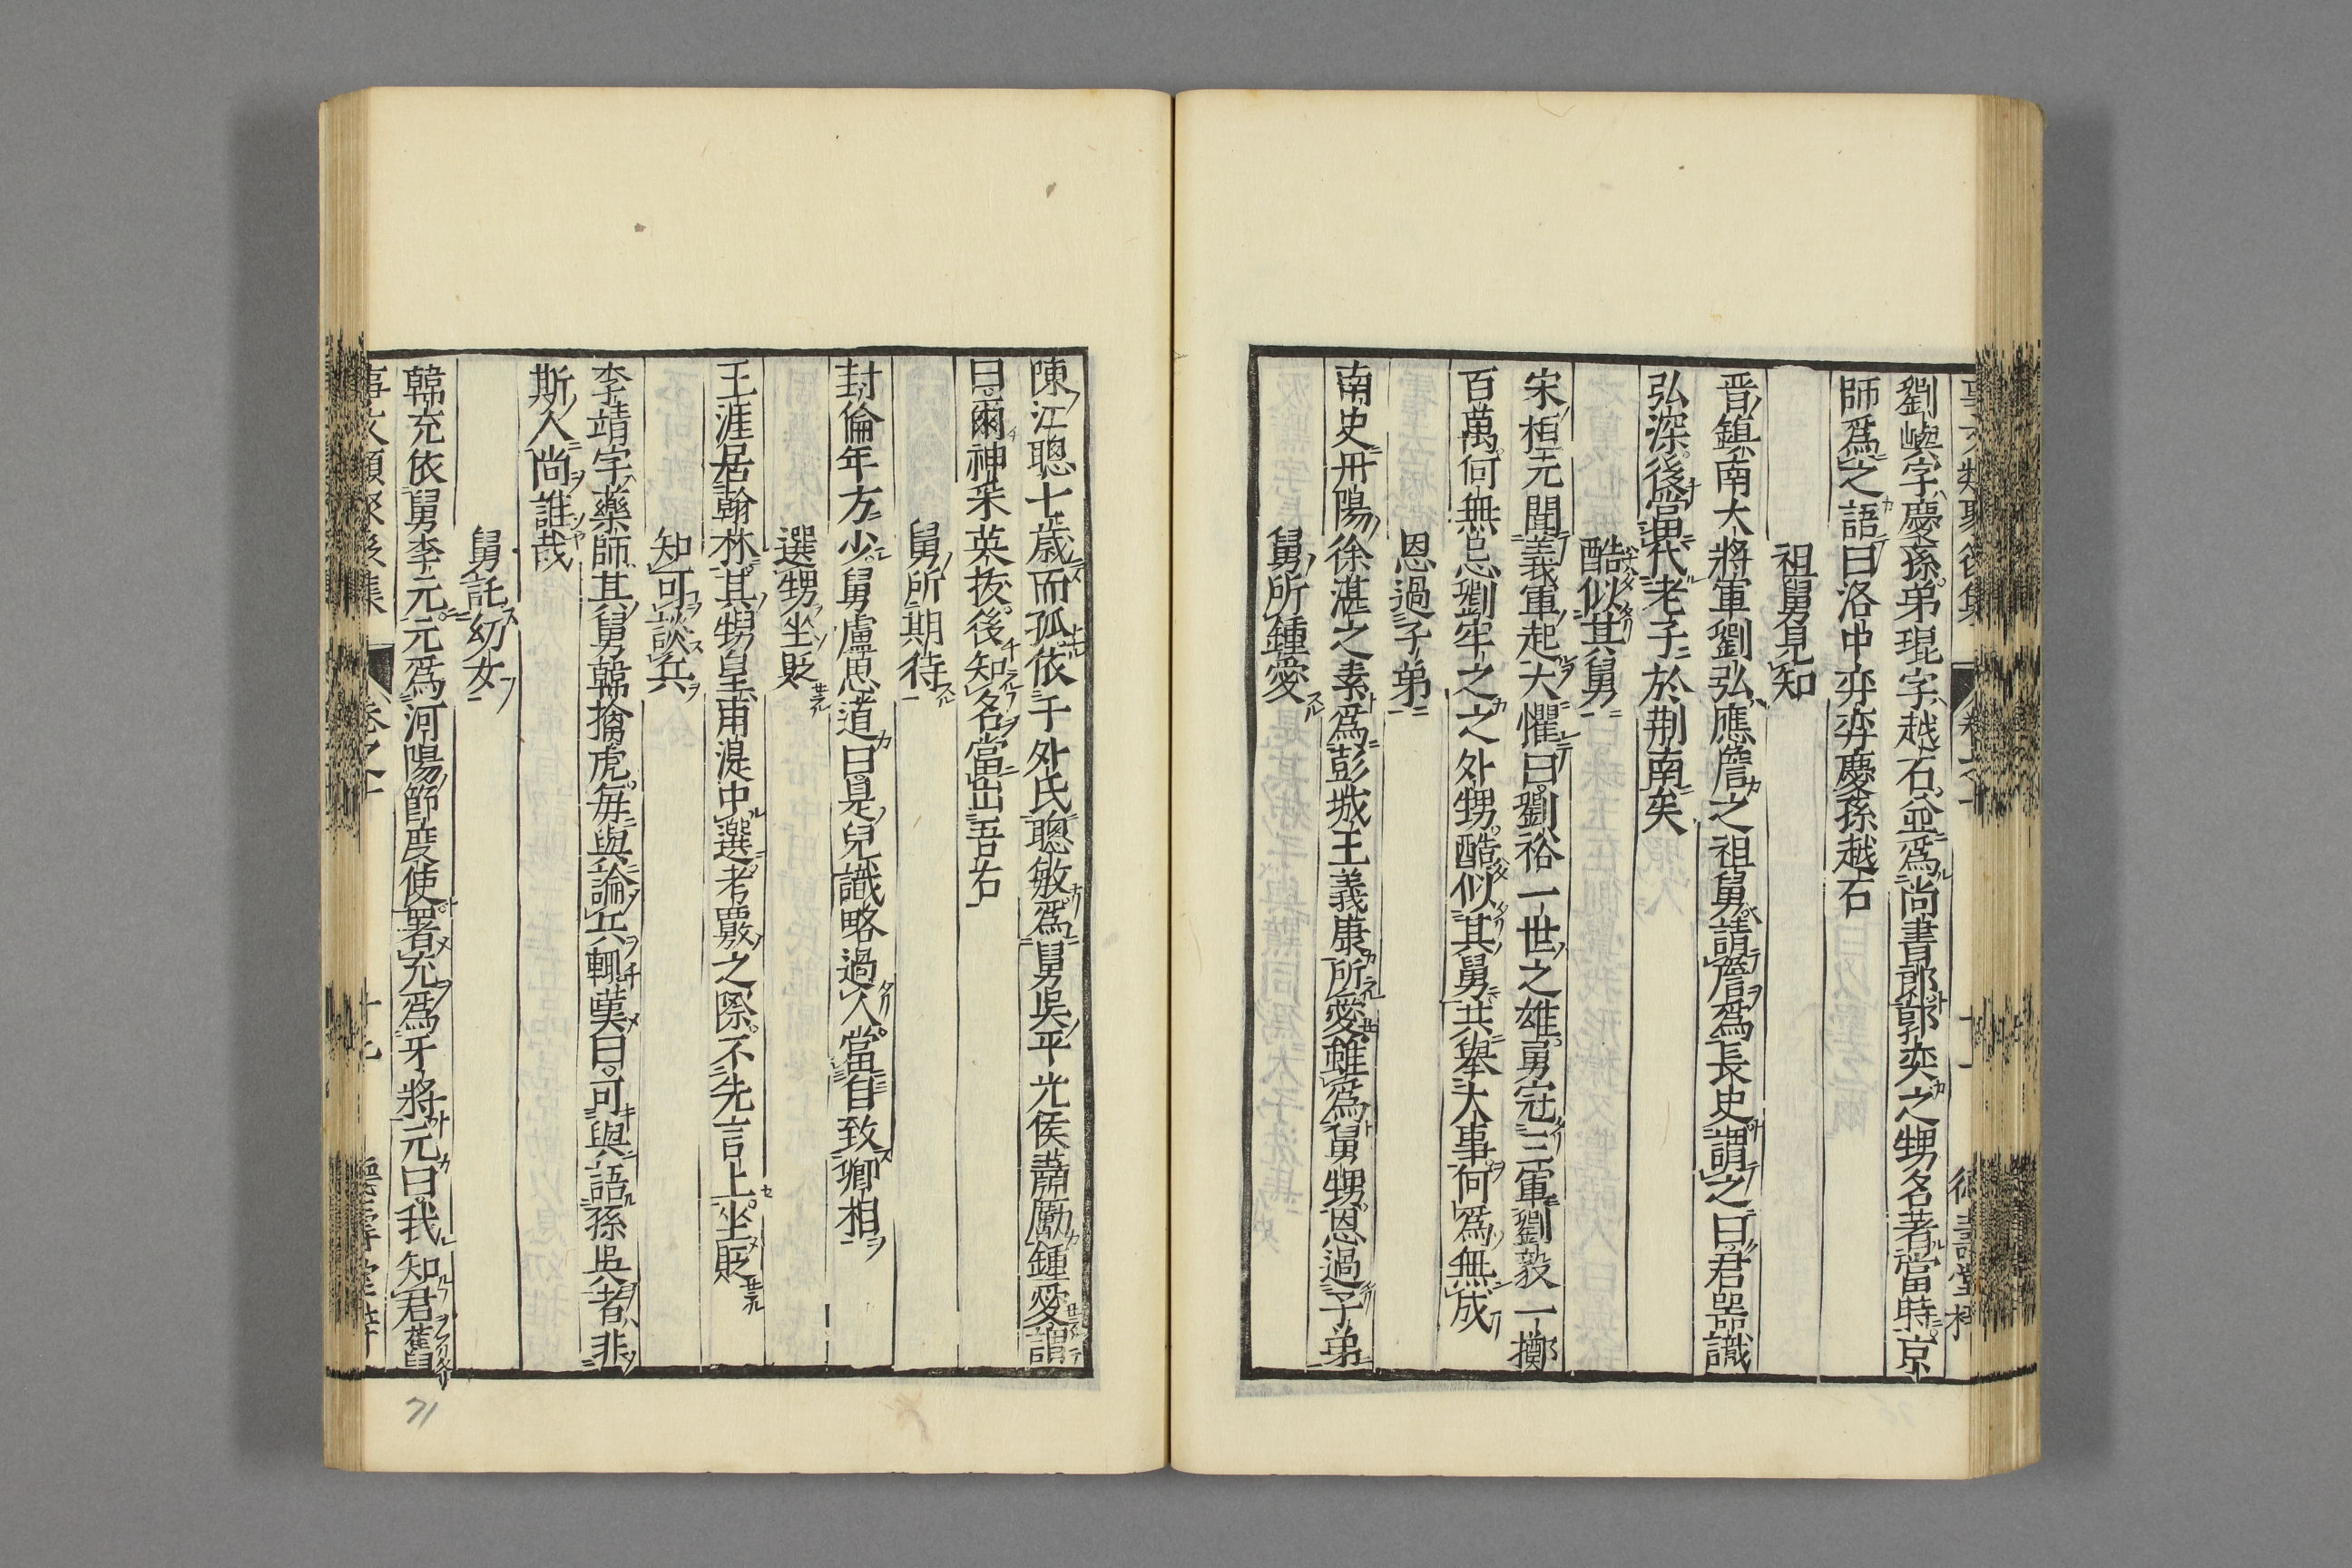 劉嶼字慶孫弟琨字越石並爲尚書郎郭奕之甥名著當時京
師爲之語曰洛中弈弈慶孫越石
祖舅見知
晋鎮南大將軍劉弘應詹之祖舅請詹爲長史謂之曰君器識
弘深後當代老子於荆南矣
酷似其舅
宋桓元聞義軍起大懼曰劉裕一世之雄勇冠三軍劉毅一擲
百萬何無忌劉牢之之外甥酷似其舅共舉大事何爲無成
恩過子弟
南史丹陽徐湛之素爲彭城王義康所愛雖爲舅甥恩過子弟
舅所鍾愛
陳江聰七歳而孤依于外氏聰敏爲舅吳平光侯蕭勵鍾愛謂
曰爾神采英抜後知名當出吾右
舅所期待
封倫年方少舅盧思道曰是兒識略過人當自致卿相
選甥坐貶
王涯居翰林其甥皇甫湜中選考覈之際不先言上坐貶
知可談兵
李靖字藥師其舅韓擒虎每與論兵輒嘆曰可與語孫吳者非
斯人尚誰哉
舅託幼女
韓充依舅李元元爲河陽節度使署充爲牙將元曰我知君舊
71